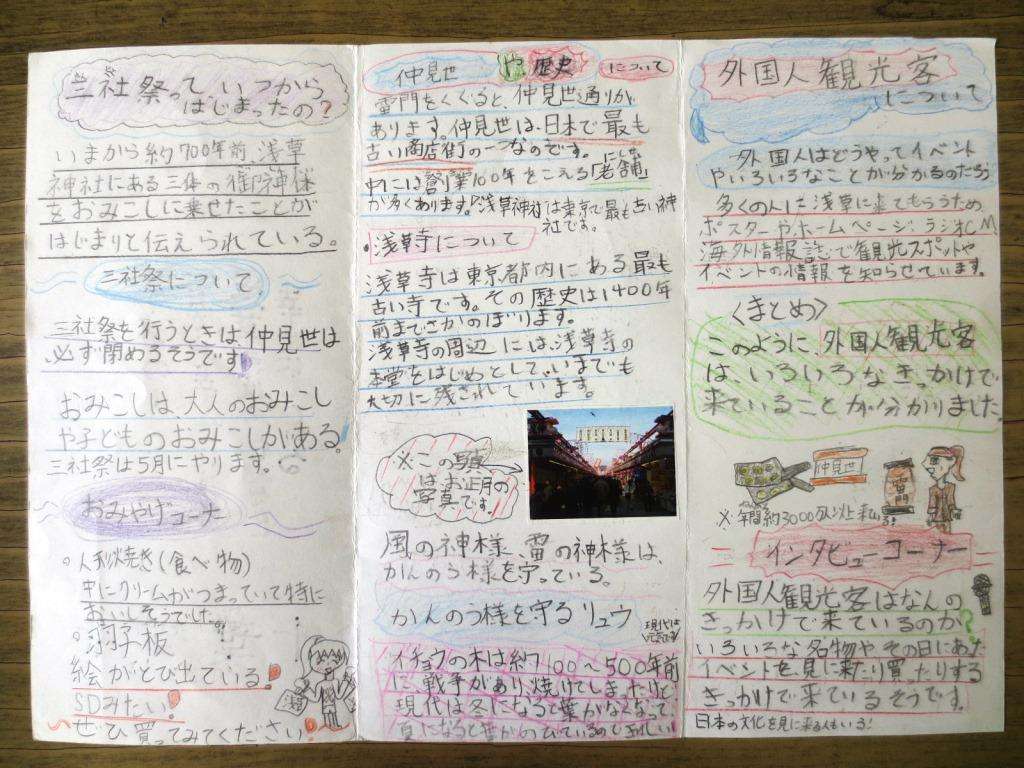 三社祭って、いつから
はじまったの?
いまから約700年前、浅草
神社にある三体の御神体
をおみこしに乗せたことが
はじまりと伝えられている。
三社祭について
三社祭を行うときは仲見世は
必ず閉めるそうです
おみこしは、大人のおみこし
や子どものおみこしがある。
三社祭は5月にやります。
おみやげコーナー
人形焼き(食べ物)
中にクリームがつまっていて特に
おいしそうでした。
羽子板
絵がとび出ている!
SDみたい!
ぜひ買ってみてください!
仲見世や歴史について
雷門をくぐると、仲見世通りが
あります。仲見世は、日本で最も
古い商店街の一つなのです。
にしせ
中には創業100年をこえる「老舗」
が多くあります。浅草神社は東京で最も古い神
社です。
・浅草寺について
浅草寺は東京都内にある最も
古い寺です。その歴史は1400年
前までさかのぼります。
浅草寺の周辺には、浅草寺の
本堂をはじめとして、いまでも
大切に残されています。
※この写真
はお正月の
写真です。
風の神様、雷の神様は
かんのう様を守っている。
かんのう様を守るリュウ
現代は
イチョウの木は約400〜500年前
に、戦争があり、焼けてしまったけど
現代は冬になると葉がなくなって、
夏になると葉が
外国人観光客
について
外国人はどうやってイベント
やいろいろなことが分かるのだろう
多くの人に浅草に来てもらうため、
ポスターやホームページ、ラジオCM、
海外情報誌で観光スポットや
イベントの情報を知らせています。
<まとめ>
このように、外国人観光客
は、いろいろなきっかけで
来ていることが分かりました。
仲見世
雷門
※年間約3000万人以上来る!
インタビューコーナー
外国人観光客はなんの
きっかけで来ているのか?
いろいろな名物やその日にあた
イベントを見に来たり買ったりする
きっかけで来ているそうです。
日本の文化を見に来る人もいる!